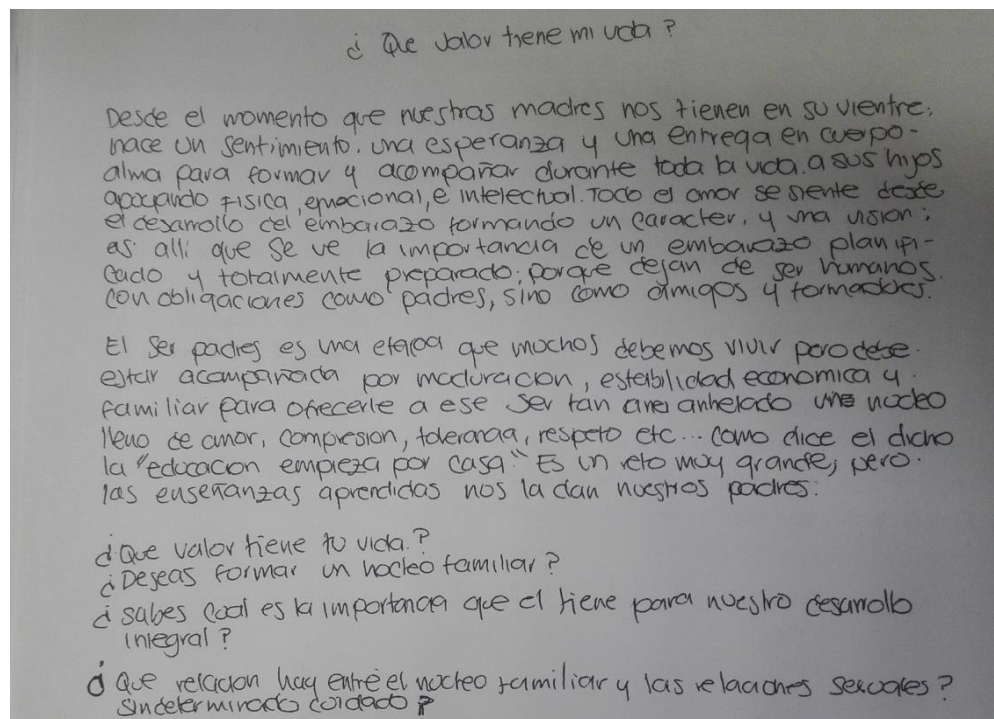 ¿ Que valor tiene mi vida ?
Desde el momento que nuestras madres nos tienen en su vientre,
nace un sentimiento. una esperanza y una entrega en cuerpo-
alma para formar y acompañar durante toda la vida. a sus hijos
apoyando Fisica, emocional, e intelectual. Todo el amor se siente desde
el desarrollo del embarazo formando un caracter, y una vision;
as alli que se ve la importancia de un embarazo planifi-
cado y totalmente preparado; porque dejan de ser humanos.
con obligaciones como padres, sino como amigos y formadores.
El ser padres es una etapa que muchos debemos vivir pero debe.
estar acompañada por maduracion, estabilidad economica y.
familiar para ofrecerle a ese ser tan anhelado un nucleo
lleno de amor, compresion, tolerancia, respeto etc... como dice el dicho
la "educacion empieza por casa." Es un reto muy grande, pero.
las enseñanzas aprendidas nos la dan nuestros padres.
¿Que valor tiene tu vida.?
¿Deseas formar un nucleo familiar?
¿sabes cual es la importancia que el tiene para nuestro desarrollo
integral?
¿Que relacion hay entre el nucleo familiar y las relaciones sexuales?
sin determinado cuidado?